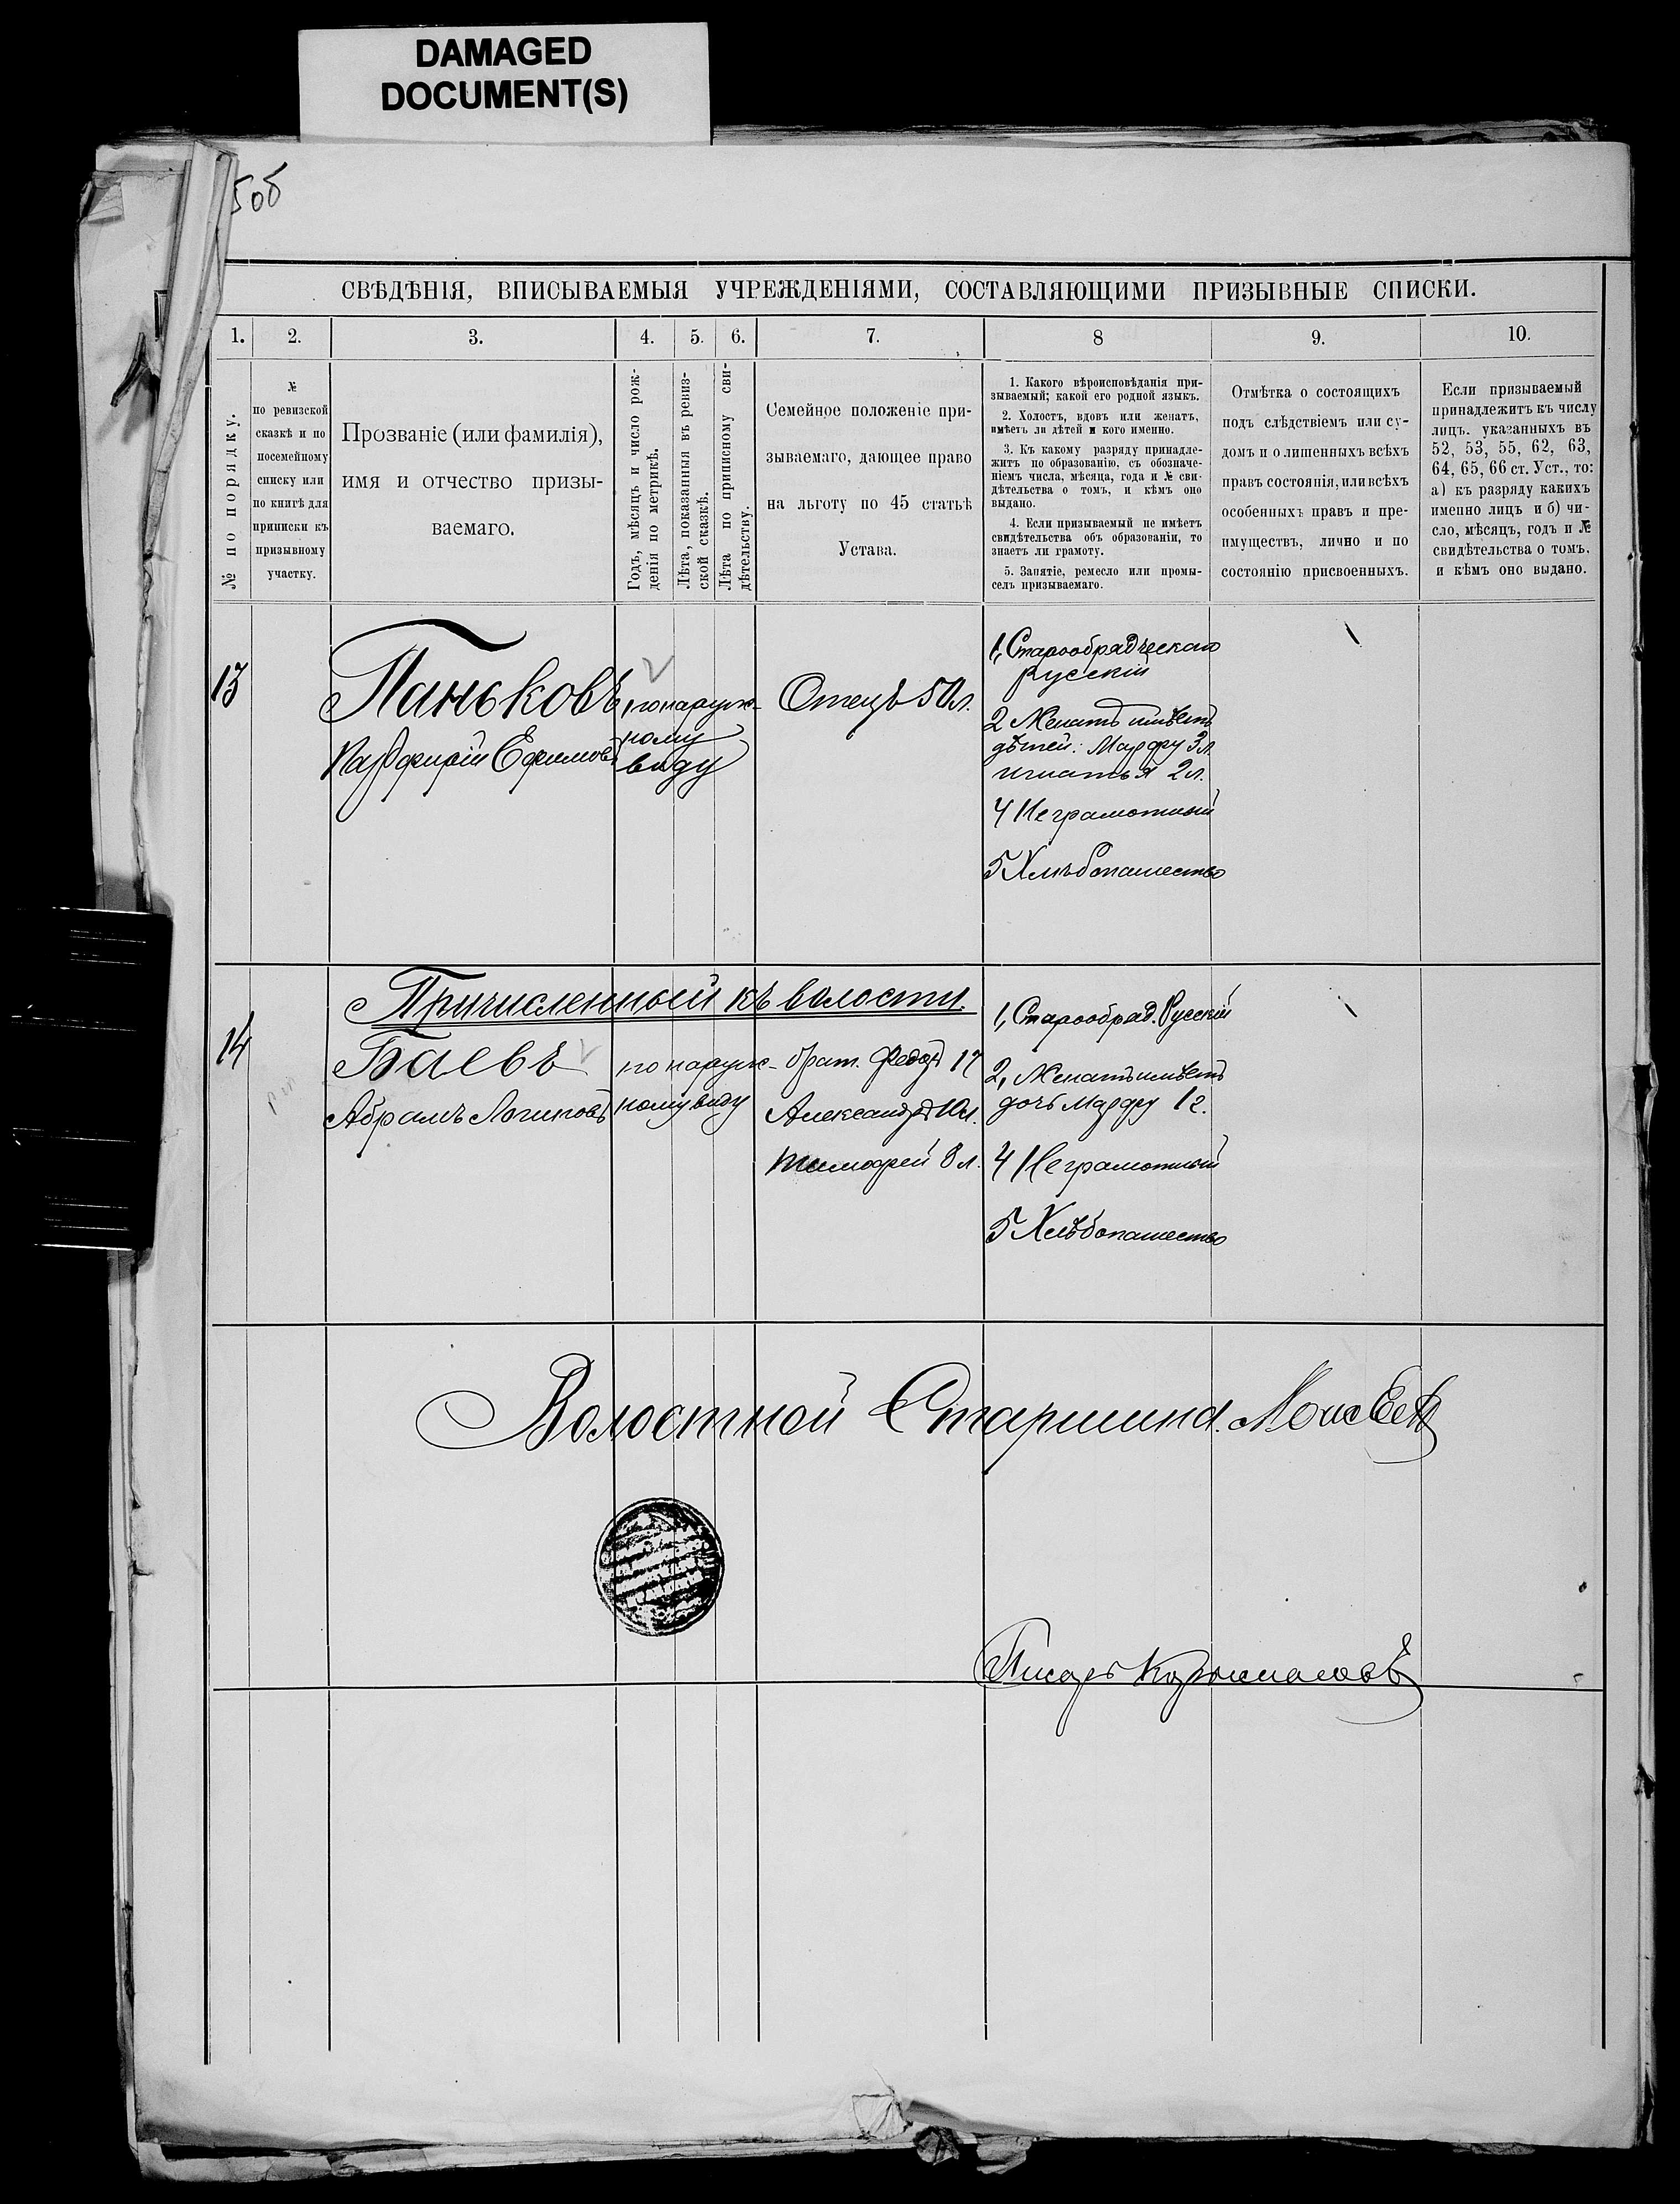 DAMAGED
DOCUMENT(S)
СВѢДѢНІЯ, ВПИСЫВАЕМЫЯ УЧРЕЖДЕНІЯМИ, СОСТАВЛЯЮЩИМИ ПРИЗЫВНЫЕ СПИСКИ.
1. 2. 3. 4. 5. 6. 7. 8 9. 10.
№ по порядку.
№
по ревизской
сказкѣ и по
посемейному
списку или
по книгѣ для
приписки къ
призывному
участку.
Прозваніе (или фамилія),
имя и отчество призы-
ваемаго.
Годъ, мѣсяцъ и число рож-
денія по метрикѣ.
Лѣта, показанныя въ ревиз-
ской сказкѣ.
Лѣта по приписному сви-
дѣтельству.
Семейное положеніе при-
зываемаго, дающее право
на льготу по 45 статьѣ
Устава.
1. Какого вѣроисповѣданія при-
зываемый; какой его родной языкъ.
2. Холостъ, вдовъ или женатъ,
имѣетъ ли дѣтей и кого именно.
3. Къ какому разряду принадле-
житъ по образованію, съ обозначе-
ніемъ числа, мѣсяца, года и № сви-
дѣтельства о томъ, и кѣмъ оно
выдано.
4. Если призываемый не имѣетъ
свидѣтельства объ образованіи, то
знаетъ ли грамоту.
5. Занятіе, ремесло или промы-
селъ призываемаго.
Отмѣтка о состоящихъ
подъ слѣдствіемъ или су-
домъ и о лишенныхъ всѣхъ
правъ состоянія, или всѣхъ
особенныхъ правъ и пре-
имуществъ, лично и по
состоянію присвоенныхъ.
Если призываемый
принадлежитъ къ числу
лицъ. указанныхъ въ
52, 53, 55, 62, 63,
64, 65, 66 ст. Уст., то:
а) къ разряду какихъ
именно лицъ и б) чи-
сло, мѣсяцъ, годъ и №
свидѣтельства о томъ.
и кѣмъ оно выдано.
13
Паньковъ
Ефимовъ
по наруж-
ному
виду
Отецъ 50 л.
1, Старообрядческаго
Русскій
2 Женатъ имѣетъ
дѣтей: Марфу 3 л.
Игнатья 2 л.
4 Неграмотный
5 Хлѣбопашество
Причисленный къ волости.
14
Баевъ
Абрамъ Логиновъ
по наруж-
ному виду
брат. Федоръ 17
Александръ 10 л.
Тимофей 8 л.
1, Старообряд. Русскій
2, Женатъ имѣетъ
дочь Марфу 1 г.
4 Неграмотный
5 Хлѣбопашество
Волостной Старшина. Моисеевъ
Писарь